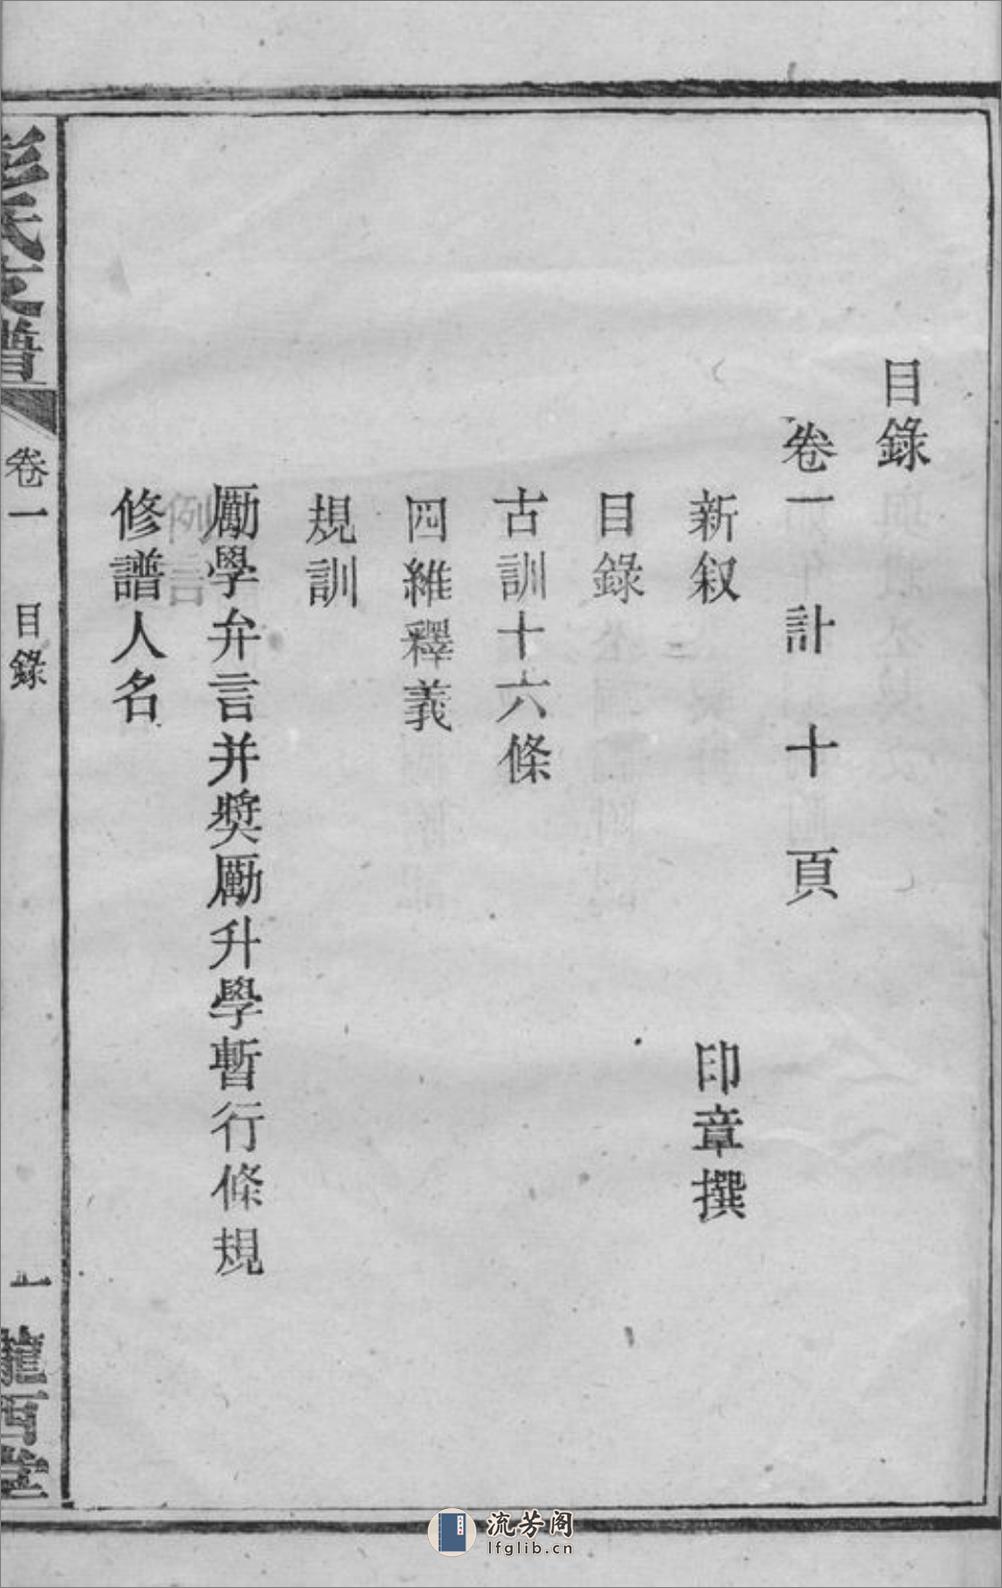 目錄
卷一 計十頁
新叙 印章撰
目錄
古訓十六條
四維釋義
規訓
勵學弁言并奬勵升學暫行條規
例言
修譜人名
彭氏支譜 卷一 目錄 一 隴西堂
流芳阁
lfglib.cn